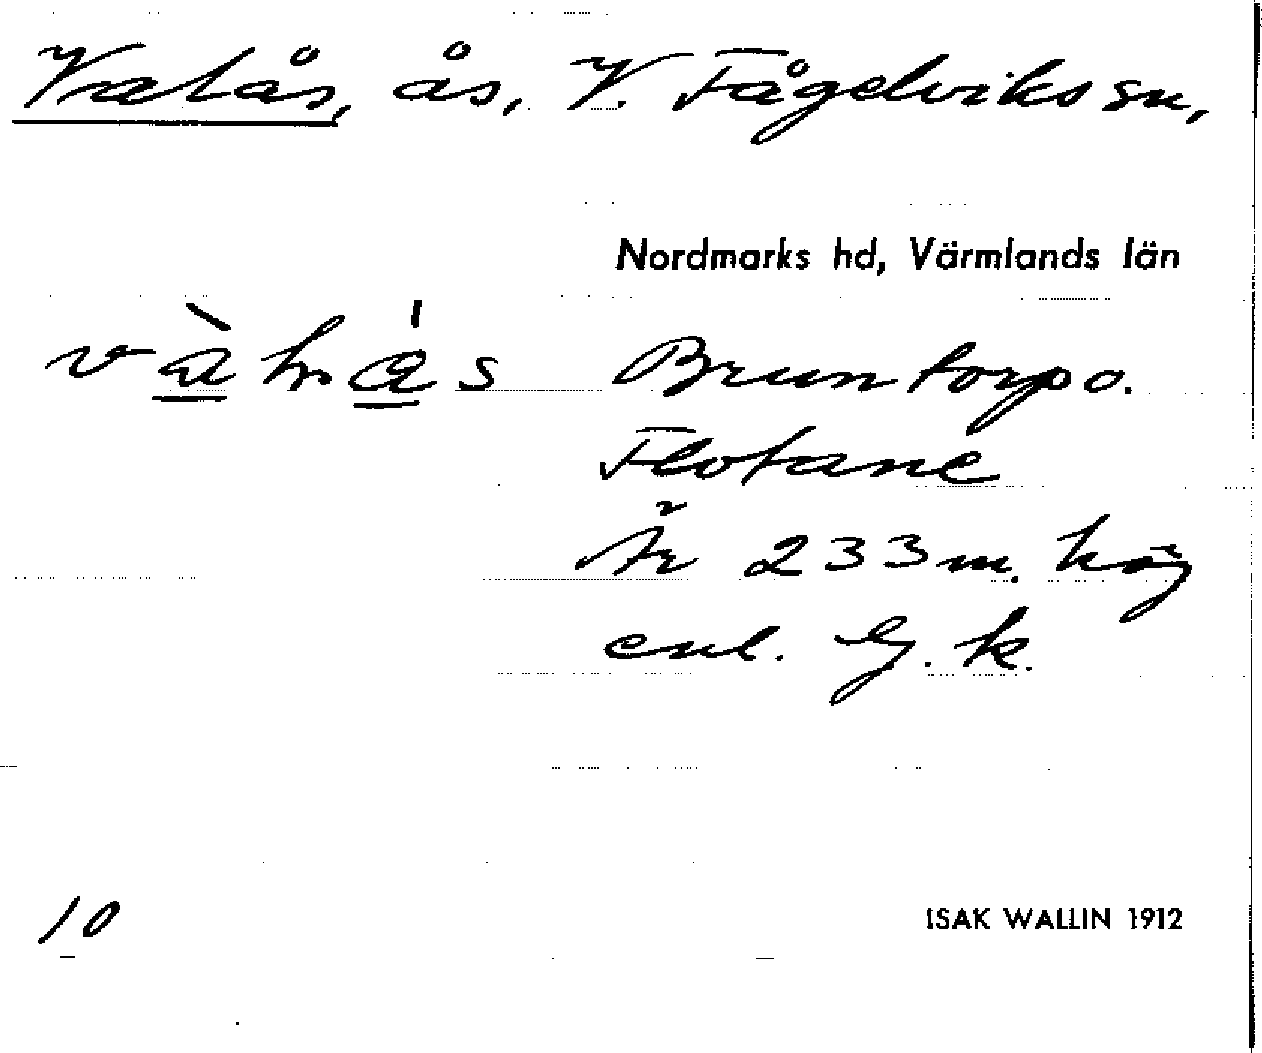 Vralås, ås, V. Fågelviks sn,
Nordmarks hd, Värmlands län
Bruntorp o.
Flotane
Är 233 m. hög
enl. G. k.
10
ISAK WALLIN 1912